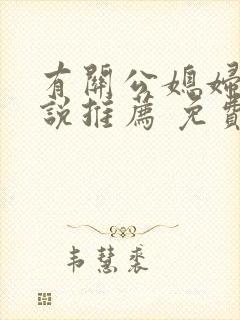 有關公媳婦
說推薦 免費
韦慧裘